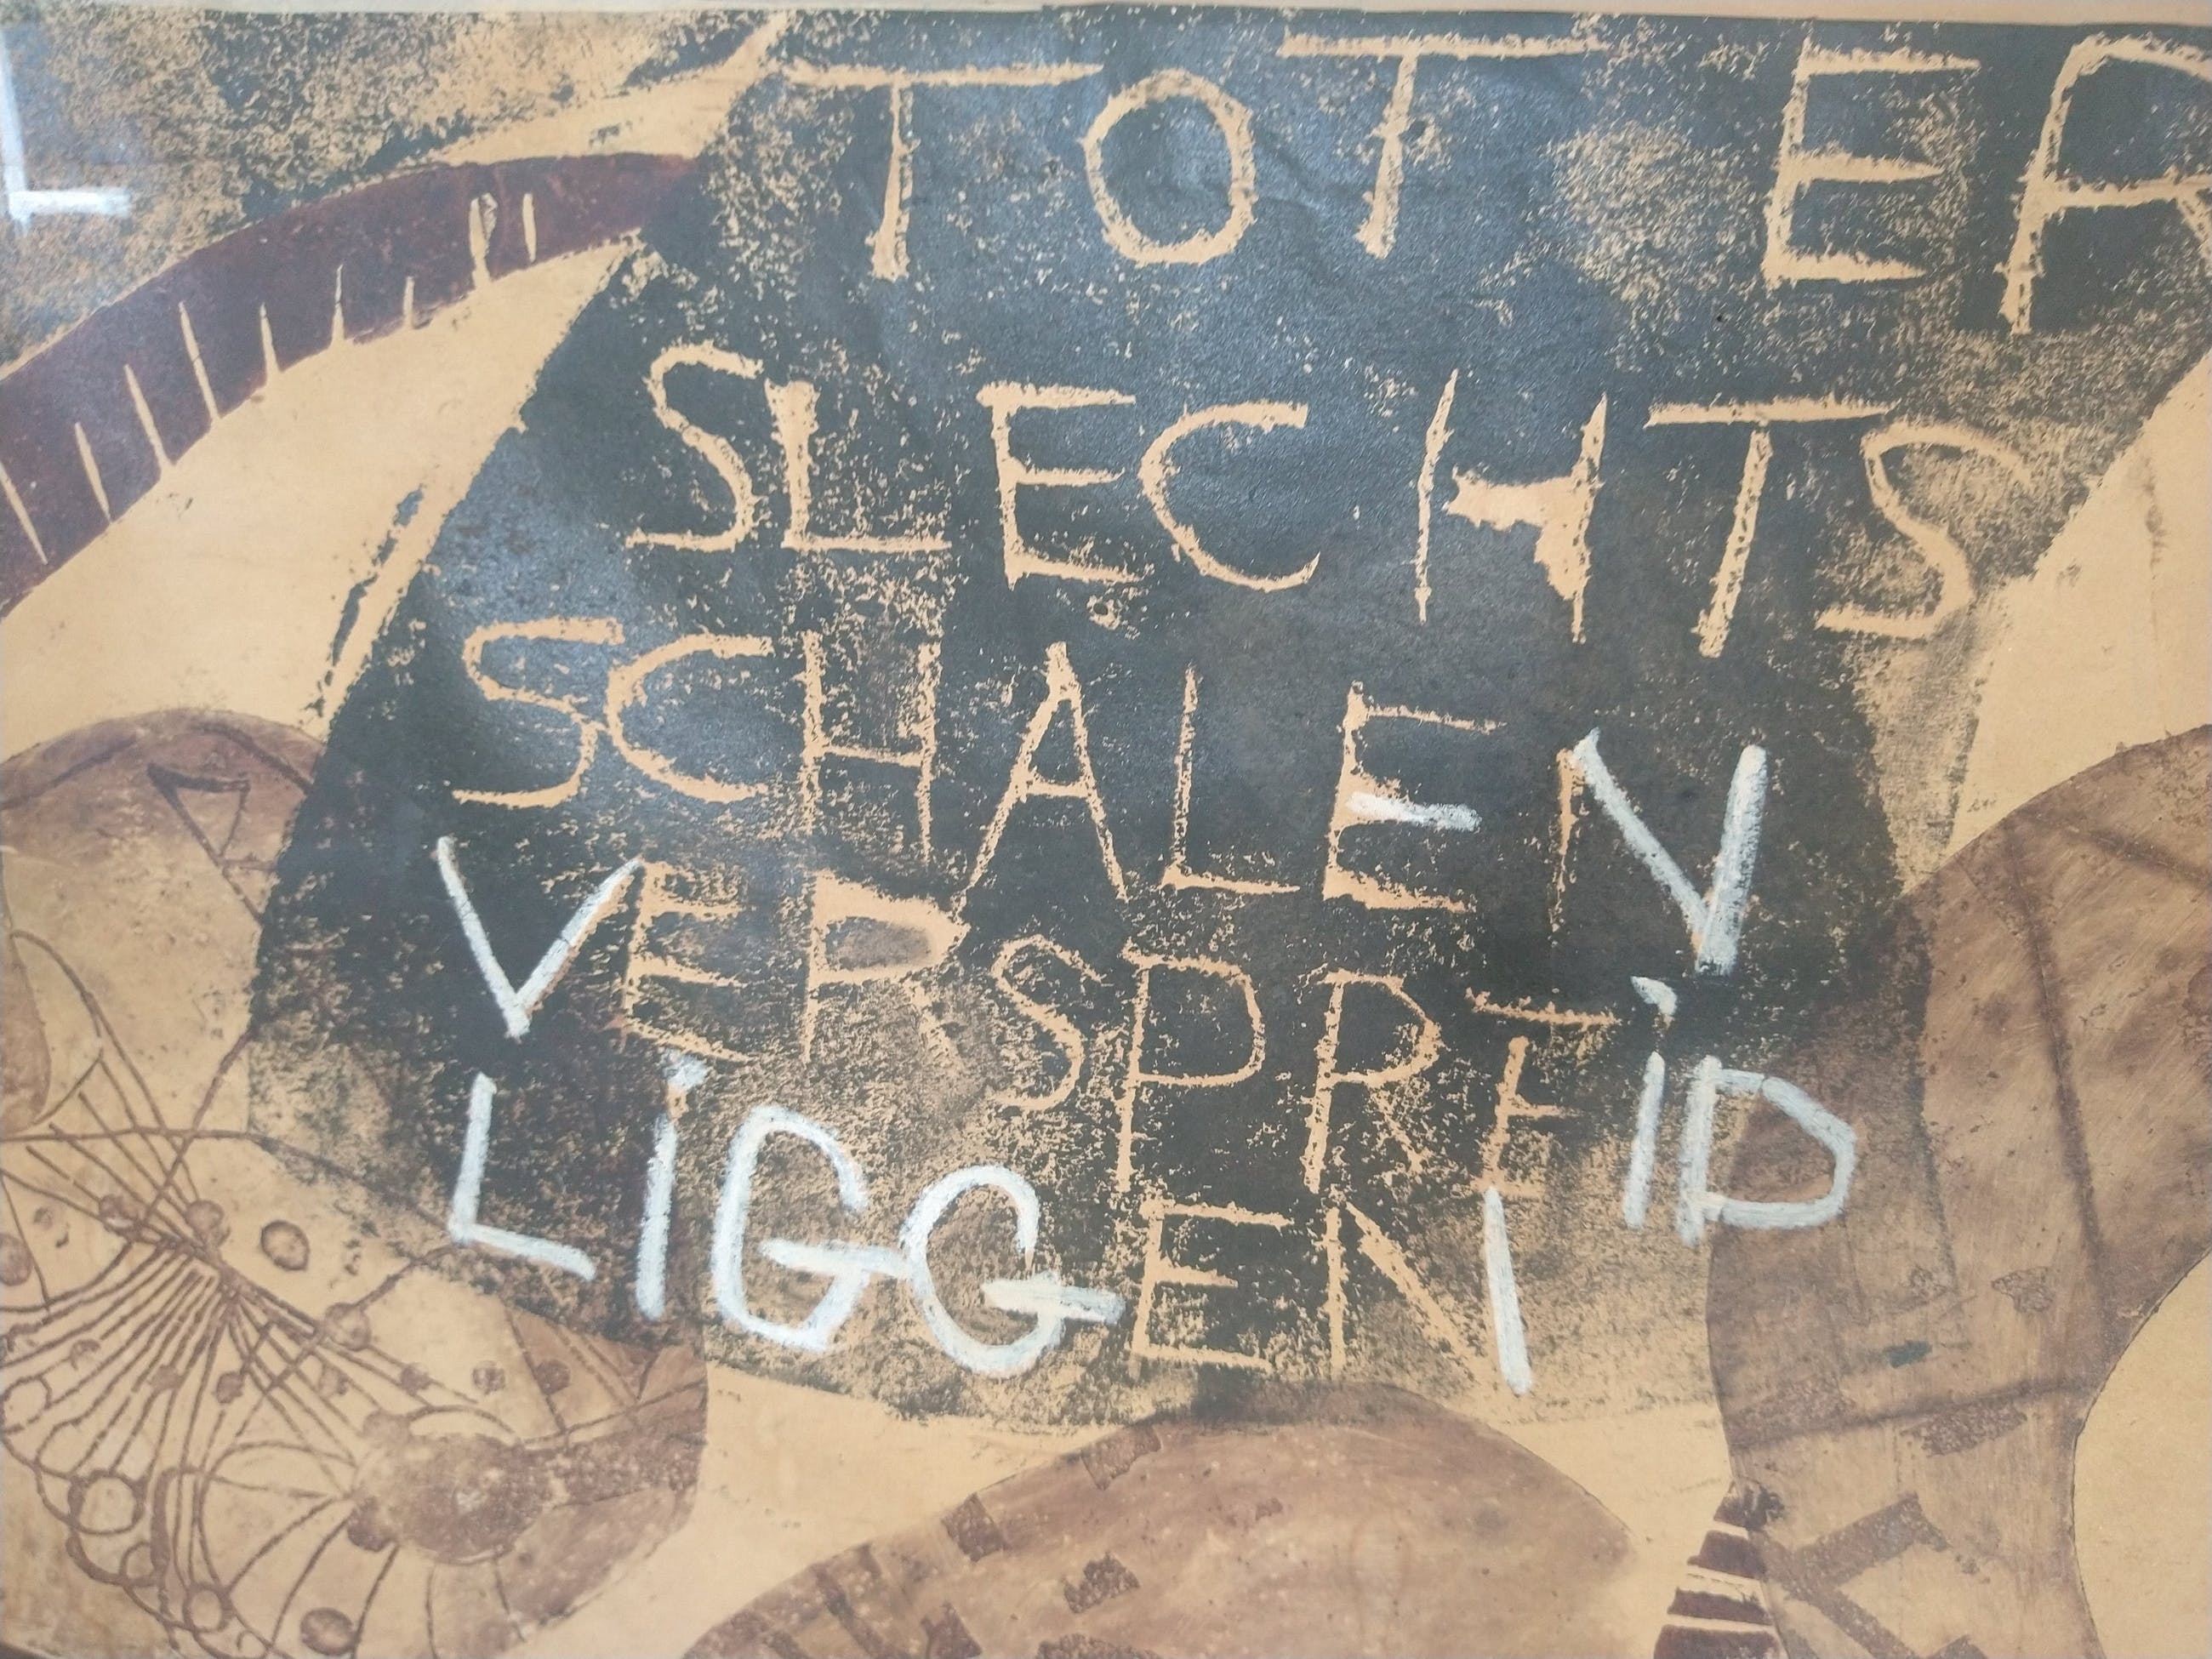 TOT ER
SLECHTS
SCHALEN
VERSPREID
LIGGEN